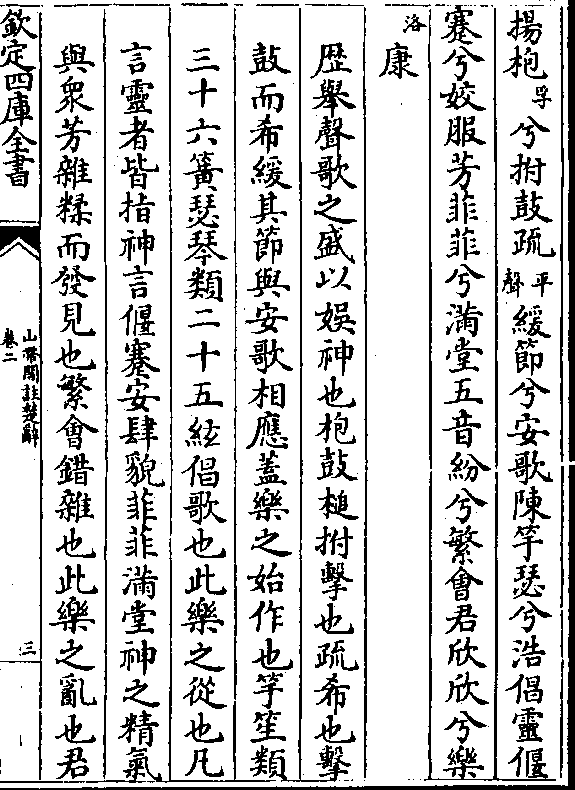 揚枹孚兮拊鼓疏平聲緩節兮安歌陳竽瑟兮浩倡靈偃
蹇兮姣服芳菲菲兮滿堂五音紛兮繁會君欣欣兮樂
洛康
歴舉聲歌之盛以娛神也枹鼓槌拊擊也疏希也擊
鼓而希緩其節與安歌相應葢樂之始作也竽笙類
三十六簧瑟琴類二十五絃倡歌也此樂之從也凡
言靈者皆指神言偃蹇安肆貌菲菲滿堂神之精氣
與衆芳雜糅而發見也繁會錯雜也此樂之亂也君
欽定四庫全書
山帶閣註楚辭
卷二
三